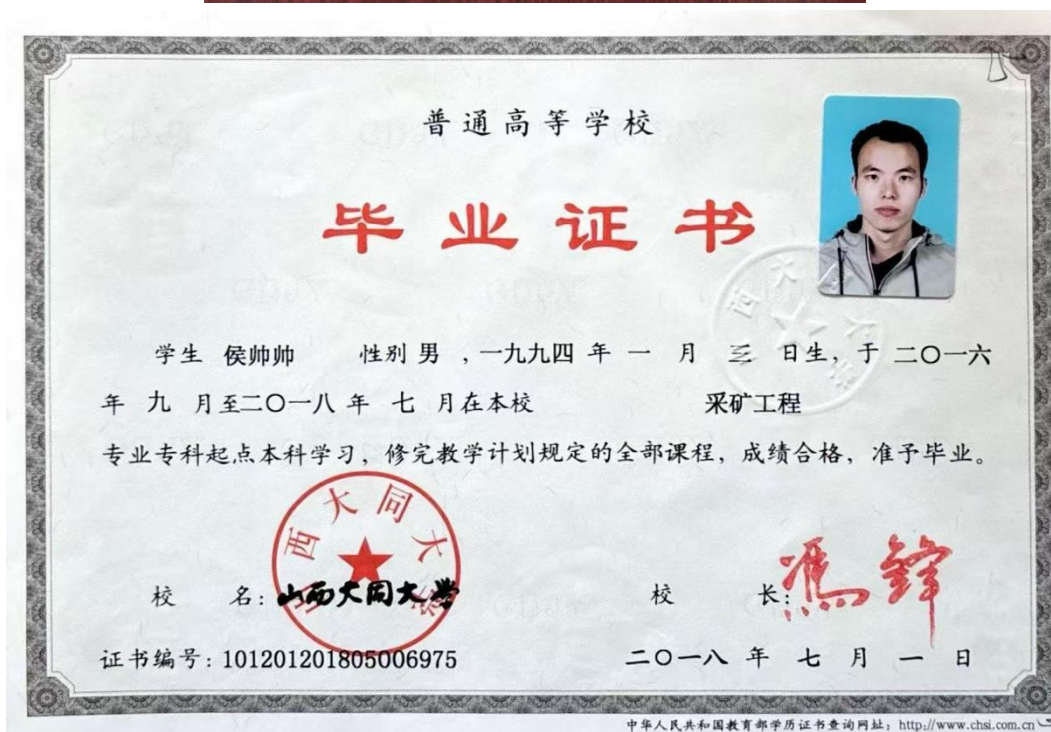 普通高等学校
毕业证书
学生 侯帅帅 性别 男 ，一九九四 年 一 月 三 日生，于 二〇一六
年 九 月至二〇一八 年 七 月在本校 采矿工程
专业专科起点本科学习，修完教学计划规定的全部课程，成绩合格，准予毕业。
山西大同大学
校 名：山西大同大学 校 长：冯锋
证书编号：101201201805006975 二〇一八 年 七 月 一 日
中华人民共和国教育部学历证书查询网址：http://www.chsi.com.cn